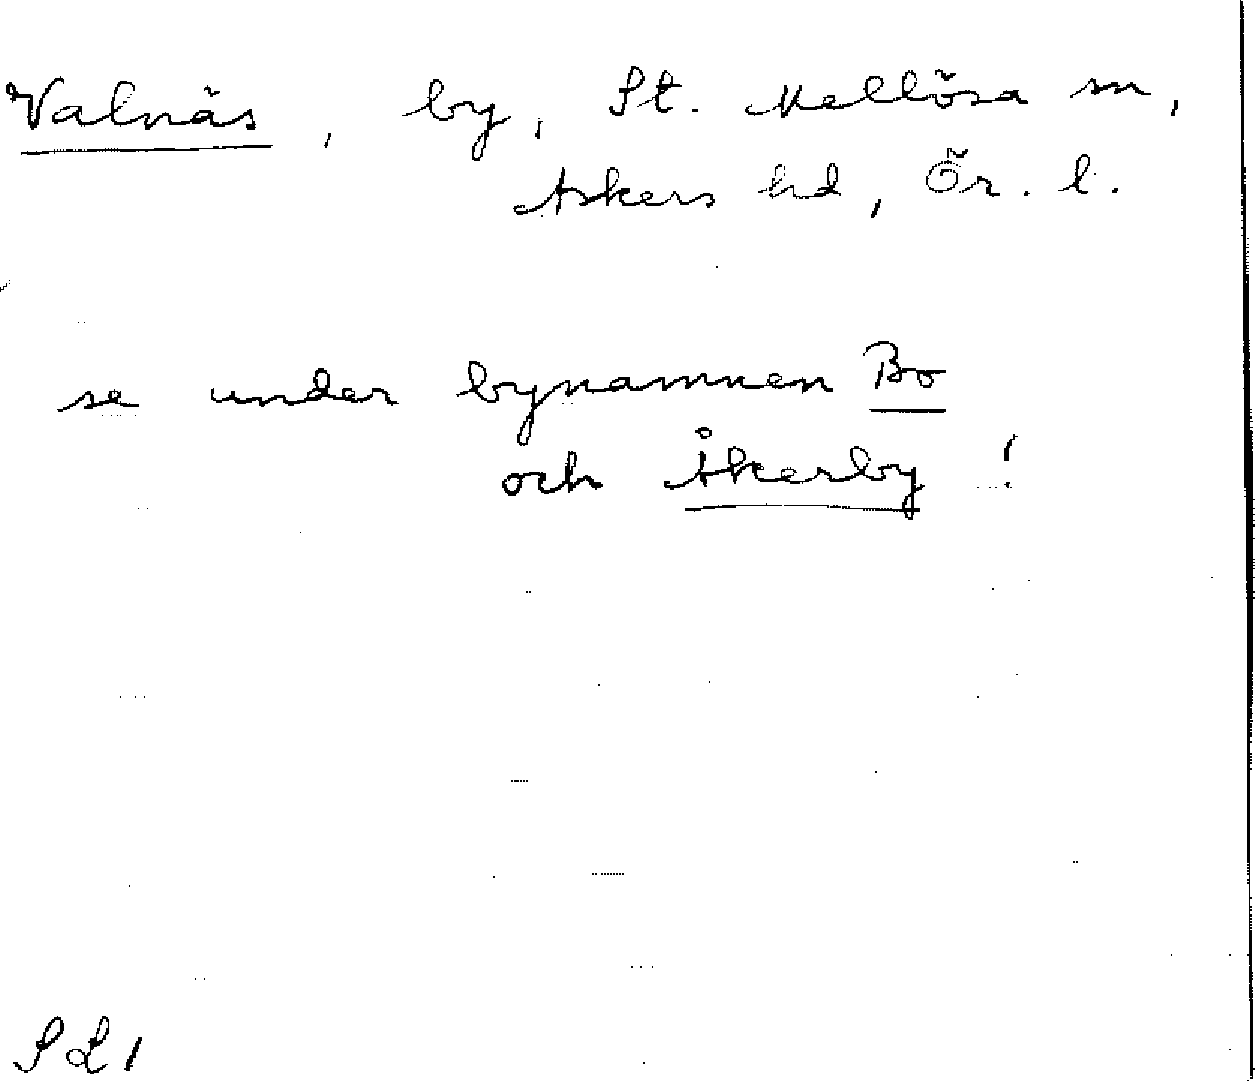 Valnäs, by, St. Mellösa sn,
Askers hd, Ör. l.
se under bynamnen Bo
och Åkerby!
SL1